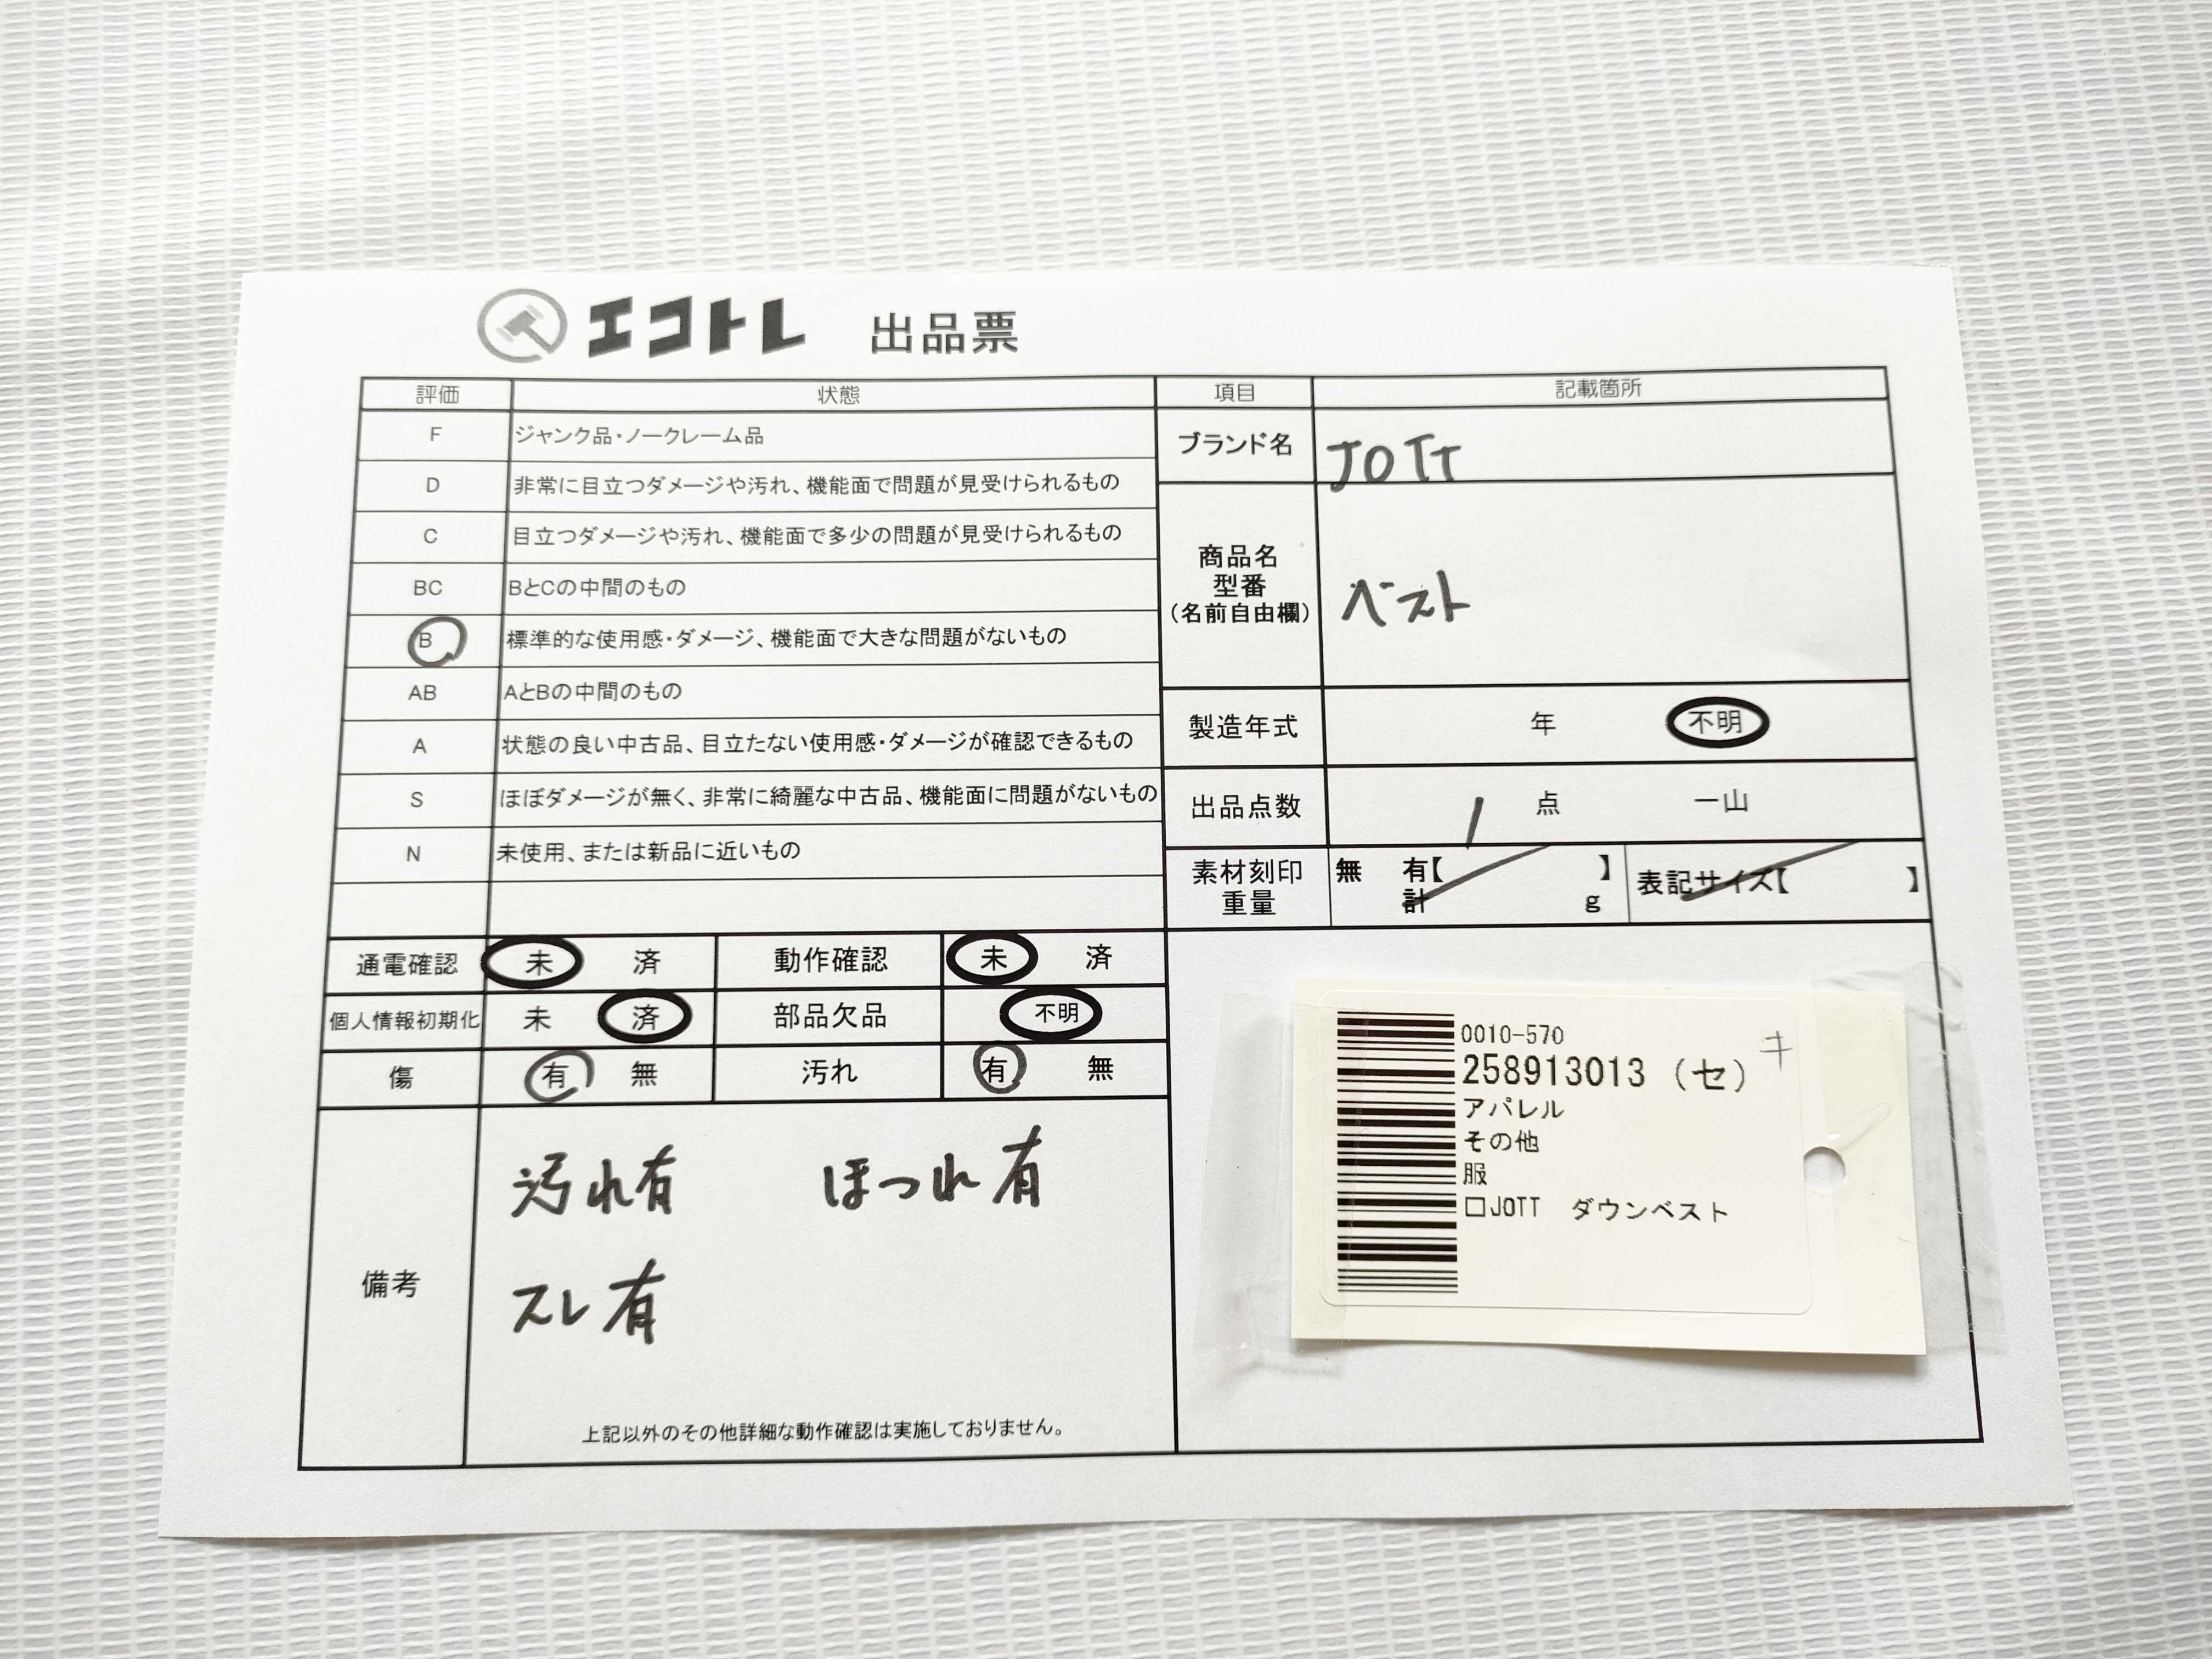 エコトレ 出品票
評価 状態
F ジャンク品・ノークレーム品
D 非常に目立つダメージや汚れ、機能面で問題が見受けられるもの
C 目立つダメージや汚れ、機能面で多少の問題が見受けられるもの
BC BとCの中間のもの
B 標準的な使用感・ダメージ、機能面で大きな問題がないもの
AB AとBの中間のもの
A 状態の良い中古品、目立たない使用感・ダメージが確認できるもの
S ほぼダメージが無く、非常に綺麗な中古品、機能面に問題がないもの
N 未使用、または新品に近いもの
項目 記載箇所
ブランド名 JOTT
商品名
型番
(名前自由欄)
ベスト
製造年式 年 不明
出品点数 1 点 一山
素材刻印 無 有【 】 表記サイズ【 】
重量 計 g
通電確認 未 済 動作確認 未 済
個人情報初期化 未 済 部品欠品 不明
傷 有 無 汚れ 有 無
備考
汚れ有 ほつれ有
スレ有
上記以外のその他詳細な動作確認は実施しておりません。
0010-570 キ
258913013 (セ)
アパレル
その他
服
□JOTT ダウンベスト